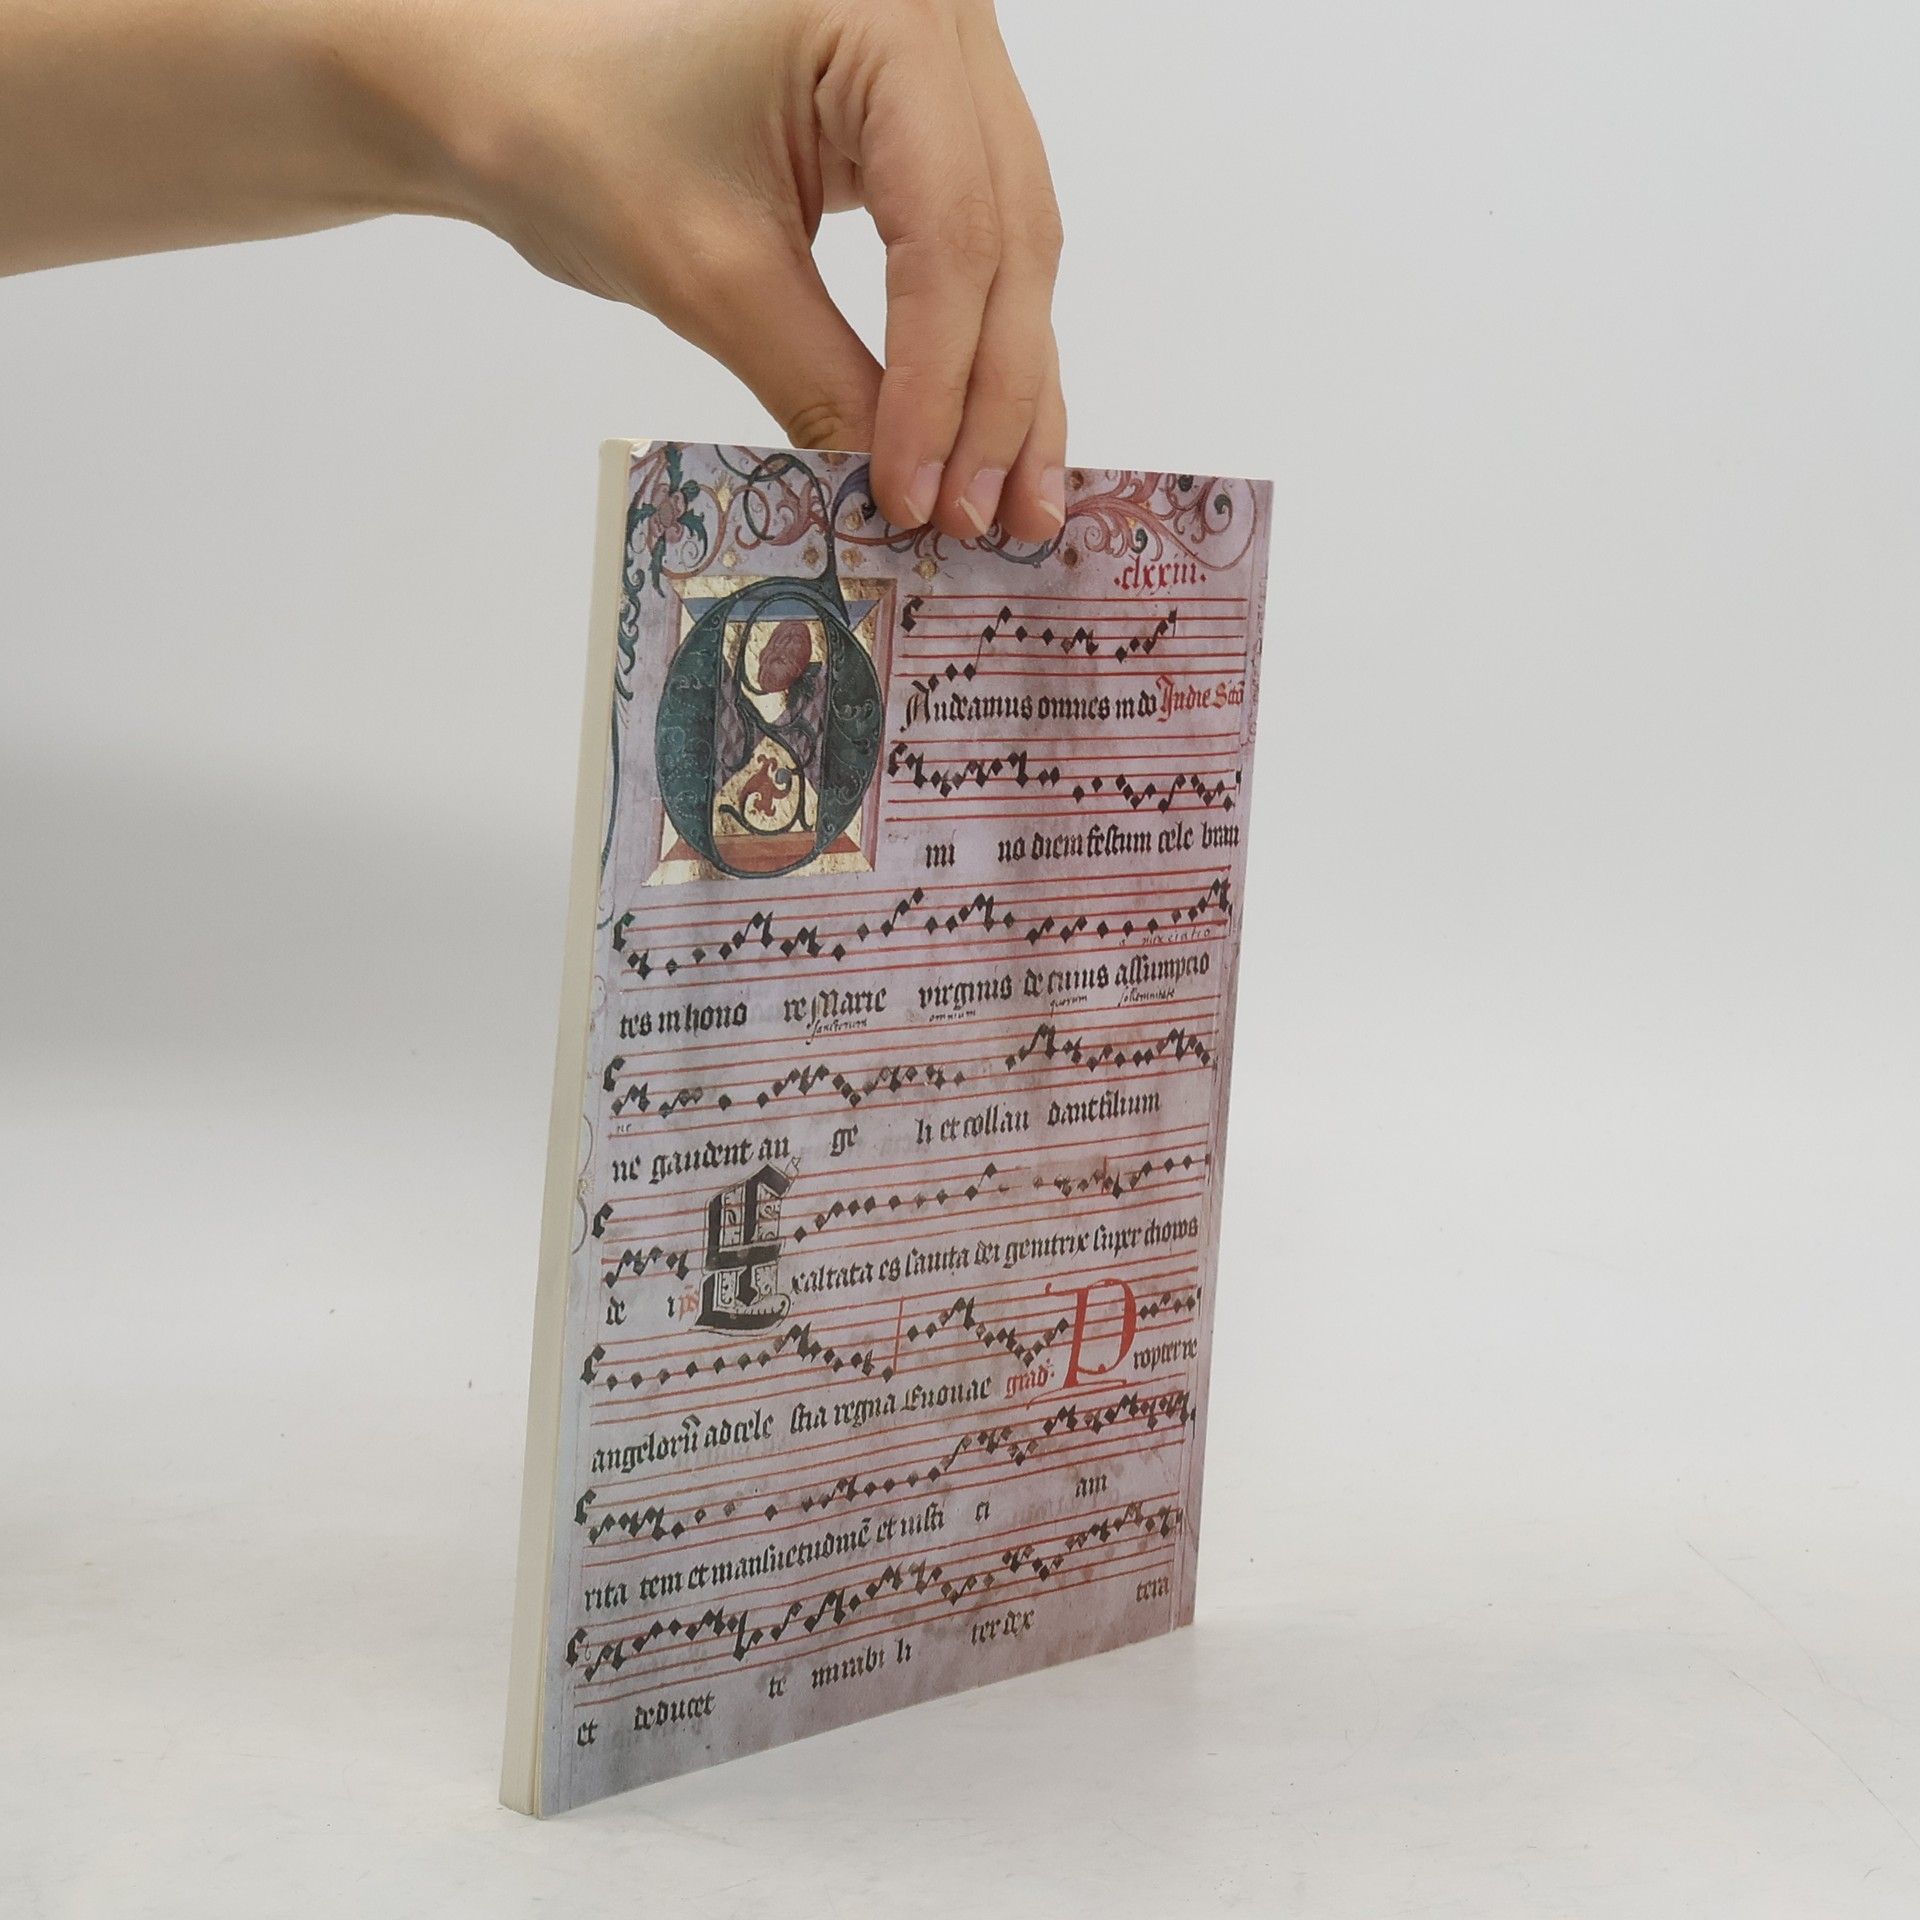 .clxxiii.
Audeamus omnes in do In die Scto
mi no diem festum cele bran
a nunciatio
tes in hono re Marie virginis de cuius assumpcio
sanctorum omnium quorum sollemnitate
ne
ne gaudent an ge li et collau dant filium
de i ps Exaltata es sancta dei genitrix super choros
angeloru ad cele stia regna Euouae grad. Propter ve
rita tem et mansuetudinē et iusti ci am
et deducet te mirabi li ter dex tera